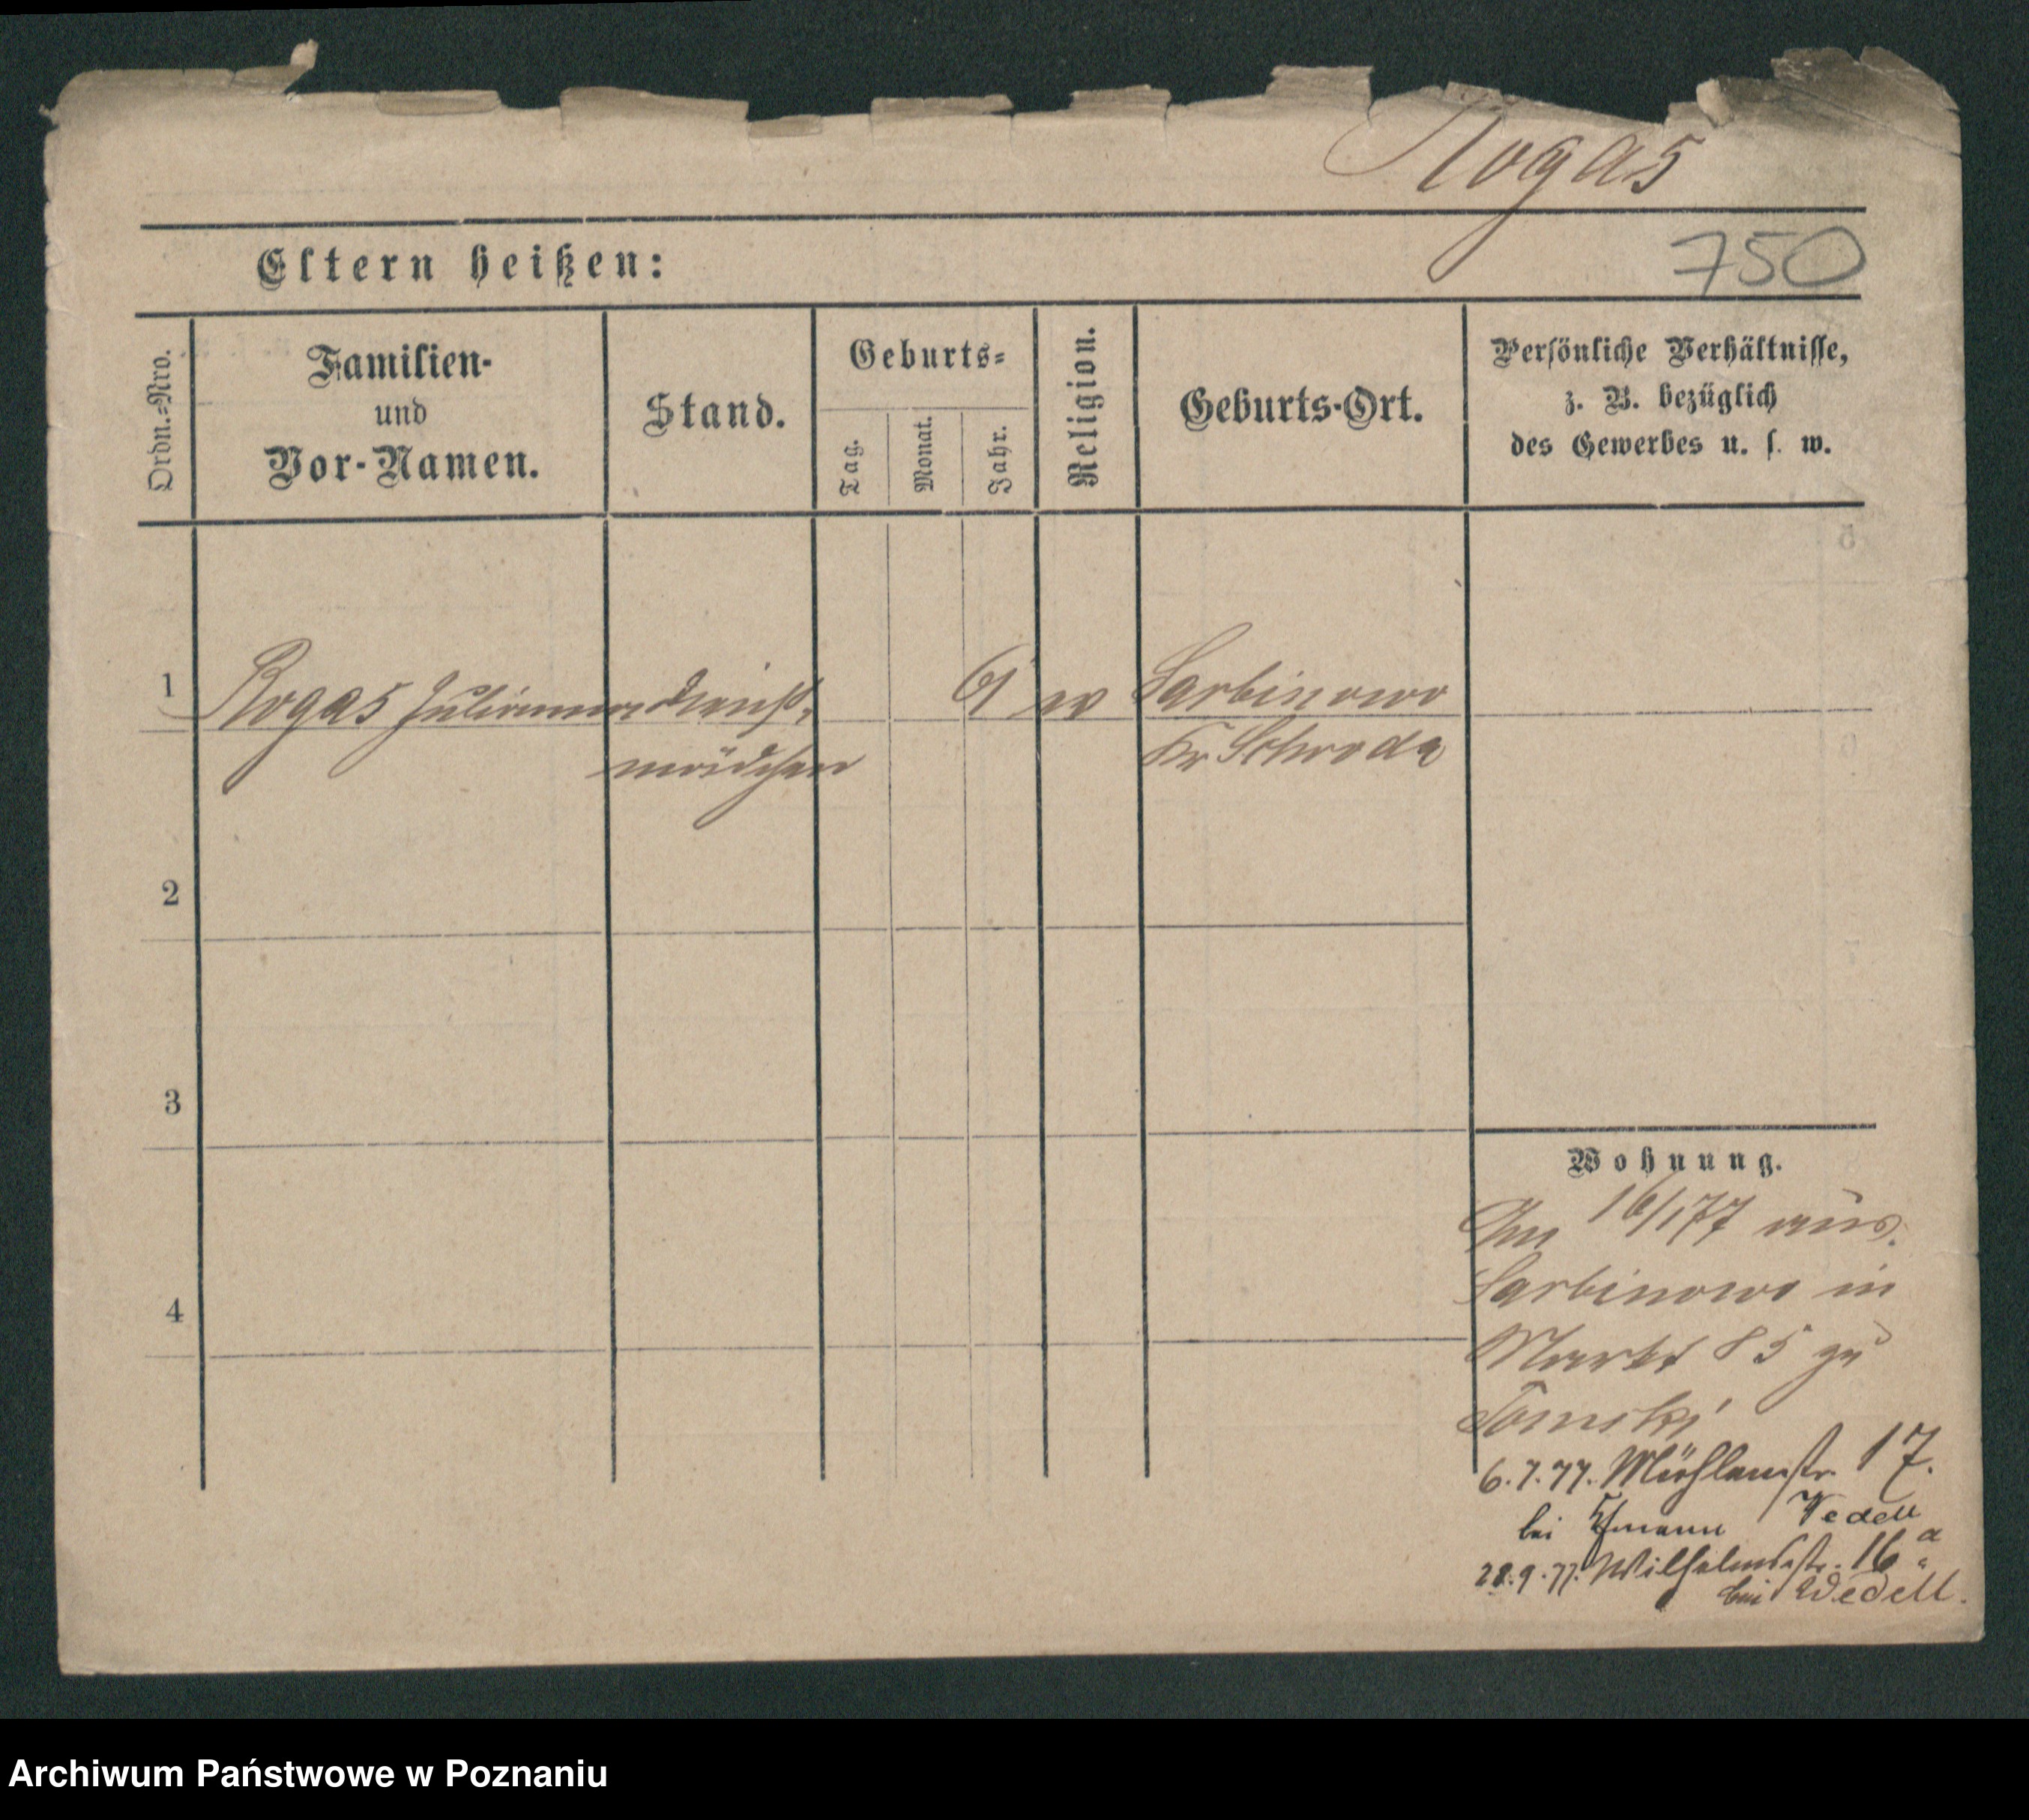 Rogas
Eltern heißen:
750
Ordn.-Nro.
Familien-
und
Vor-Namen.
Stand.
Geburts-
Tag.
Monat.
Jahr.
Religion.
Geburts-Ort.
Persönliche Verhältnisse,
z. B. bezüglich
des Gewerbes u. s. w.
1
Rogas Julianna
Dienst-
mädchen
61
Sarbinowo
Kr Schroda
2
3
4
Wohnung.
16/1 77 aus
Sarbinowo in
Markt 85 zu
Tomski
6.7.77. Mühlenstr. 17.
bei Kfmann Wedell
28.9.77. Wilhelmstr. 16a
bei Wedell.
Archiwum Państwowe w Poznaniu